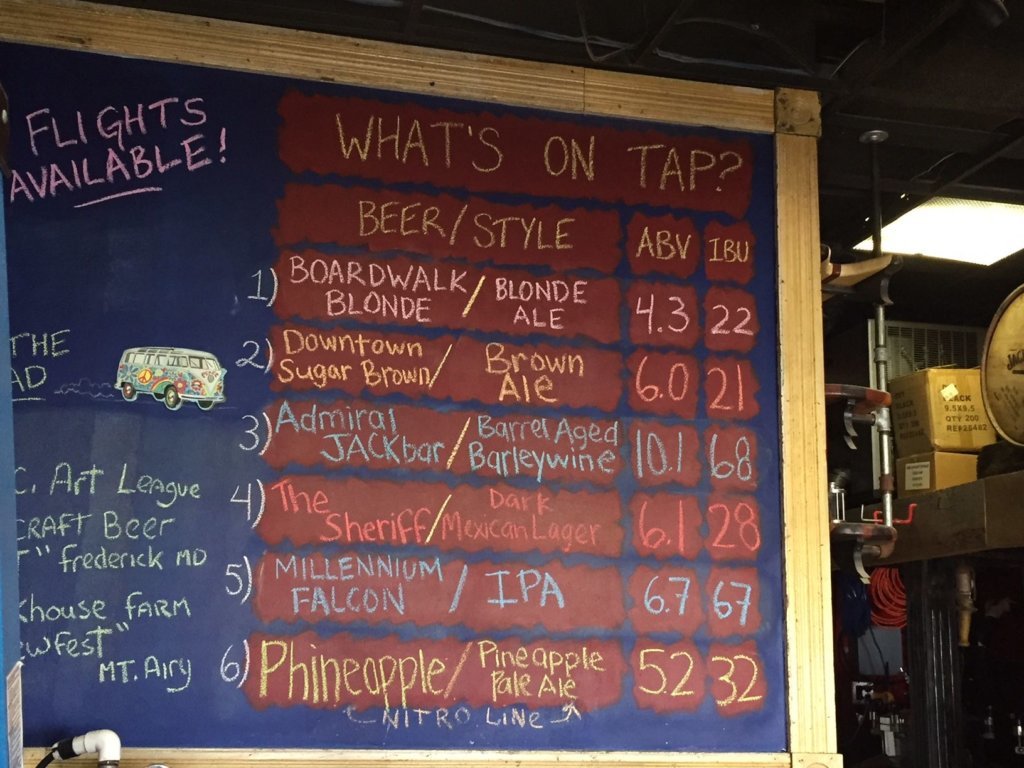 FLIGHTS
AVAILABLE!
THE
AD
C. Art League
CRAFT Beer
T" frederick MD
khouse farm
ewfest"
MT. Airy
WHAT'S ON TAP?
BEER/STYLE ABV IBU
1) BOARDWALK BLONDE / BLONDE ALE 4.3 22
2) Downtown Sugar Brown / Brown Ale 6.0 21
3) Admiral JACKbar / Barrel Aged Barleywine 10.1 68
4) The Sheriff / Dark Mexican Lager 6.1 28
5) MILLENNIUM FALCON / IPA 6.7 67
6) Phineapple / Pineapple Pale Ale 5.2 32
NITRO LINE
BLACK
9.5X9.5
QTY 200
REF25482